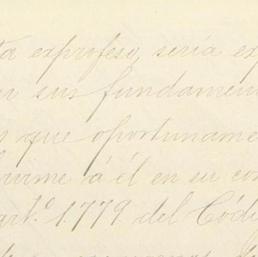 ta exprofeso, sería ex
sus fundamen
que oportuname
á él en su con
art.º 1779 del Códi